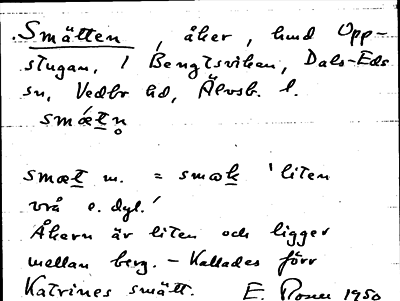 Smätten, åker, hmd Opp-
stugan, 1 Bengtsviken, Dals-Eds
sn, Vedbo hd, Älvsb. l.
smǽt̲n̥
smæt̲ m. = smɷk̲ 'liten
vrå o. dyl.'
Åkern är liten och ligger
mellan berg. - Kallades förr
Katrines smätt. E. 1950